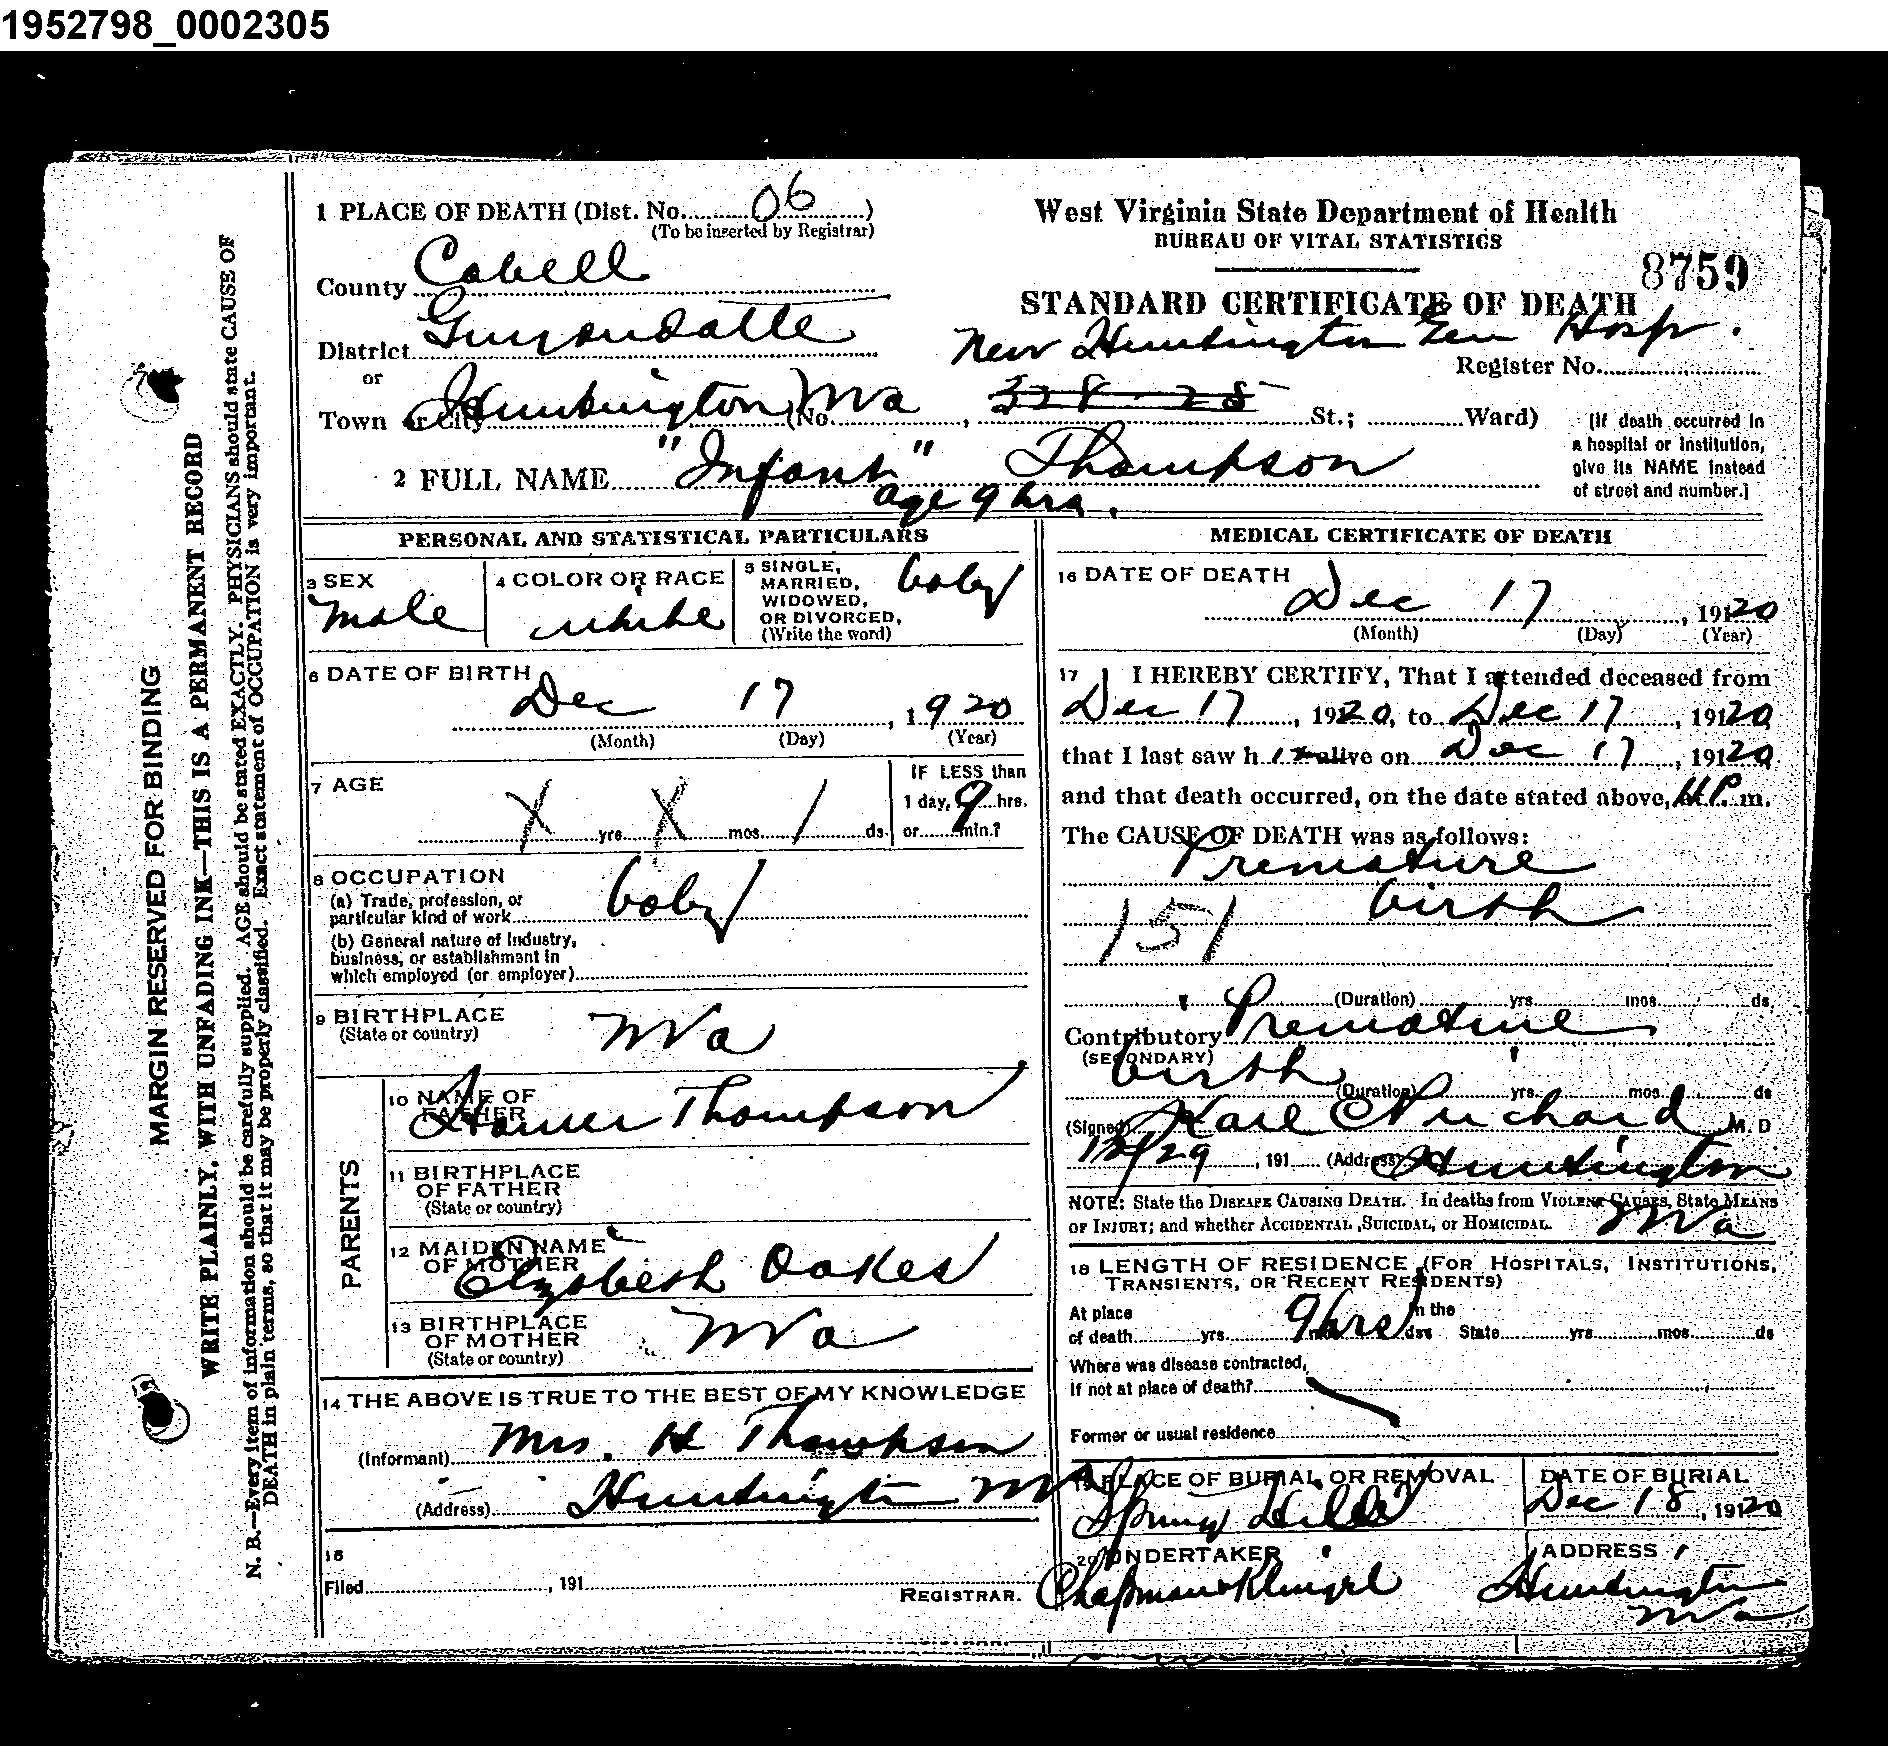 1952798_0002305
1 PLACE OF DEATH (Dist. No. 06 )
(To be inserted by Registrar)
County Cabell
District Guyandatte
or
Town or City Huntington WVa (No. , 328 - 28 St.; Ward)
2 FULL NAME "Infant" Thompson
age 9 hrs.
West Virginia State Department of Health
BUREAU OF VITAL STATISTICS
8759
STANDARD CERTIFICATE OF DEATH
New Huntington Gen Hosp.
Register No.
(If death occurred in
a hospital or institution,
give its NAME instead
of street and number.)
MARGIN RESERVED FOR BINDING
WRITE PLAINLY, WITH UNFADING INK—THIS IS A PERMANENT RECORD
N. B.—Every item of information should be carefully supplied. AGE should be stated EXACTLY. PHYSICIANS should state CAUSE OF
DEATH in plain terms, so that it may be properly classified. Exact statement of OCCUPATION is very important.
PERSONAL AND STATISTICAL PARTICULARS
3 SEX
Male
4 COLOR OR RACE
white
5 SINGLE,
MARRIED,
WIDOWED,
OR DIVORCED,
(Write the word)
baby
6 DATE OF BIRTH
Dec 17 , 1920
(Month) (Day) (Year)
7 AGE
X yrs. X mos. 1 ds.
IF LESS than
1 day, 9 hrs.
or min.?
8 OCCUPATION
(a) Trade, profession, or
particular kind of work baby
(b) General nature of Industry,
business, or establishment in
which employed (or employer)
9 BIRTHPLACE
(State or country)
WVa
PARENTS
10 NAME OF
FATHER
Homer Thompson
11 BIRTHPLACE
OF FATHER
(State or country)
12 MAIDEN NAME
OF MOTHER
Elizabeth Oakes
13 BIRTHPLACE
OF MOTHER
(State or country)
WVa
14 THE ABOVE IS TRUE TO THE BEST OF MY KNOWLEDGE
(Informant) Mrs. H Thompson
(Address) Huntington WVa
15
Filed , 191
REGISTRAR.
MEDICAL CERTIFICATE OF DEATH
16 DATE OF DEATH
Dec 17 , 1920
(Month) (Day) (Year)
17 I HEREBY CERTIFY, That I attended deceased from
Dec 17 , 1920, to Dec 17 , 1920
that I last saw h alive on Dec 17 , 1920
and that death occurred, on the date stated above, m.
The CAUSE OF DEATH was as follows:
Premature
birth
151
(Duration) yrs. mos. ds.
Contributory Premature
(SECONDARY)
birth
(Duration) yrs. mos. ds
(Signed) Karl C Prichard M. D
12/29 , 191 (Address) Huntington
WVa
NOTE: State the DISEASE CAUSING DEATH. In deaths from VIOLENT CAUSES, State MEANS
OF INJURY; and whether ACCIDENTAL, SUICIDAL, or HOMICIDAL.
18 LENGTH OF RESIDENCE (FOR HOSPITALS, INSTITUTIONS,
TRANSIENTS, OR RECENT RESIDENTS)
At place
of death yrs. 9 hrs ds. In the State yrs. mos. ds
Where was disease contracted,
If not at place of death?
Former or usual residence
19 PLACE OF BURIAL OR REMOVAL
Spring Hill
DATE OF BURIAL
Dec 18 , 1920
20 UNDERTAKER
Chapman
ADDRESS
Huntington
WVa